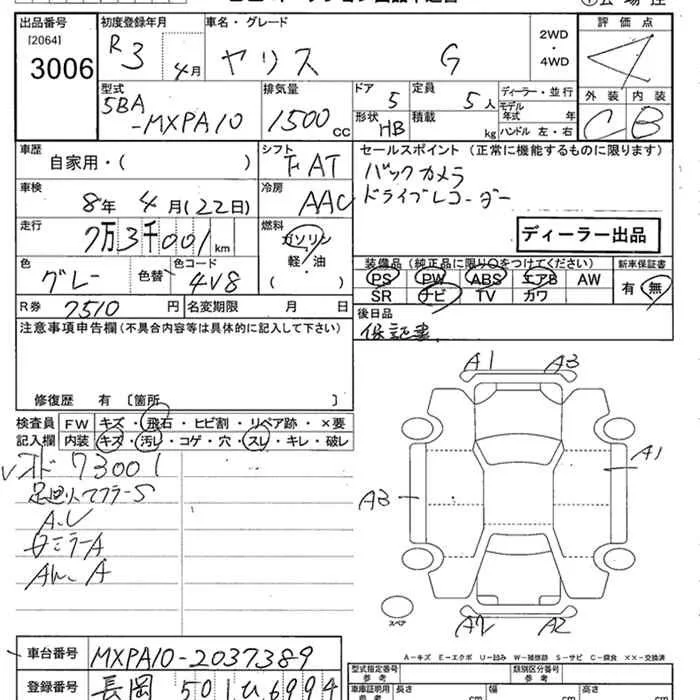 出品番号 初度登録年月 車名・グレード 評価点
[2064] R3 4月 ヤリス G 2WD・4WD 4
3006
型式 排気量 ドア 定員 ディーラー・並行 外装 内装
5BA-MXPA10 1500cc 5 5人 モデル年式 年 C B
形状 積載
HB kg ハンドル 左・右
車歴 シフト セールスポイント(正常に機能するものに限ります)
自家用・( ) F AT バックカメラ
車検 冷房 ドライブレコーダー
8年 4月(22日) AAC
走行 燃料 ディーラー出品
7万3千001km ガソリン
軽・油
( )
色 色替 色コード 装備品(純正品に限り○をつけてください) 新車保証書
グレー 4V8 PS PW ABS エアB AW 有 無
SR ナビ TV カワ
R券 7510円 名変期限 月 日 後日品
注意事項申告欄(不具合内容等は具体的に記入して下さい) 保証書
修復歴 有 〔箇所 〕
検査員 FW キズ・飛石・ヒビ割・リペア跡・×要
記入欄 内装 キズ・汚レ・コゲ・穴・スレ・キレ・破レ
73001
A1 A3
A1
A3
スペア
A2
A-キズ E-エクボ U-凹み W-補修跡 S-サビ C-腐食 ××-交換済
車台番号 MXPA10-2037389 型式指定番号 類別区分番号
参考 参考
登録番号 長岡 501 ひ 6994 車庫証明用 長さ 幅 高さ
参考 cm cm cm